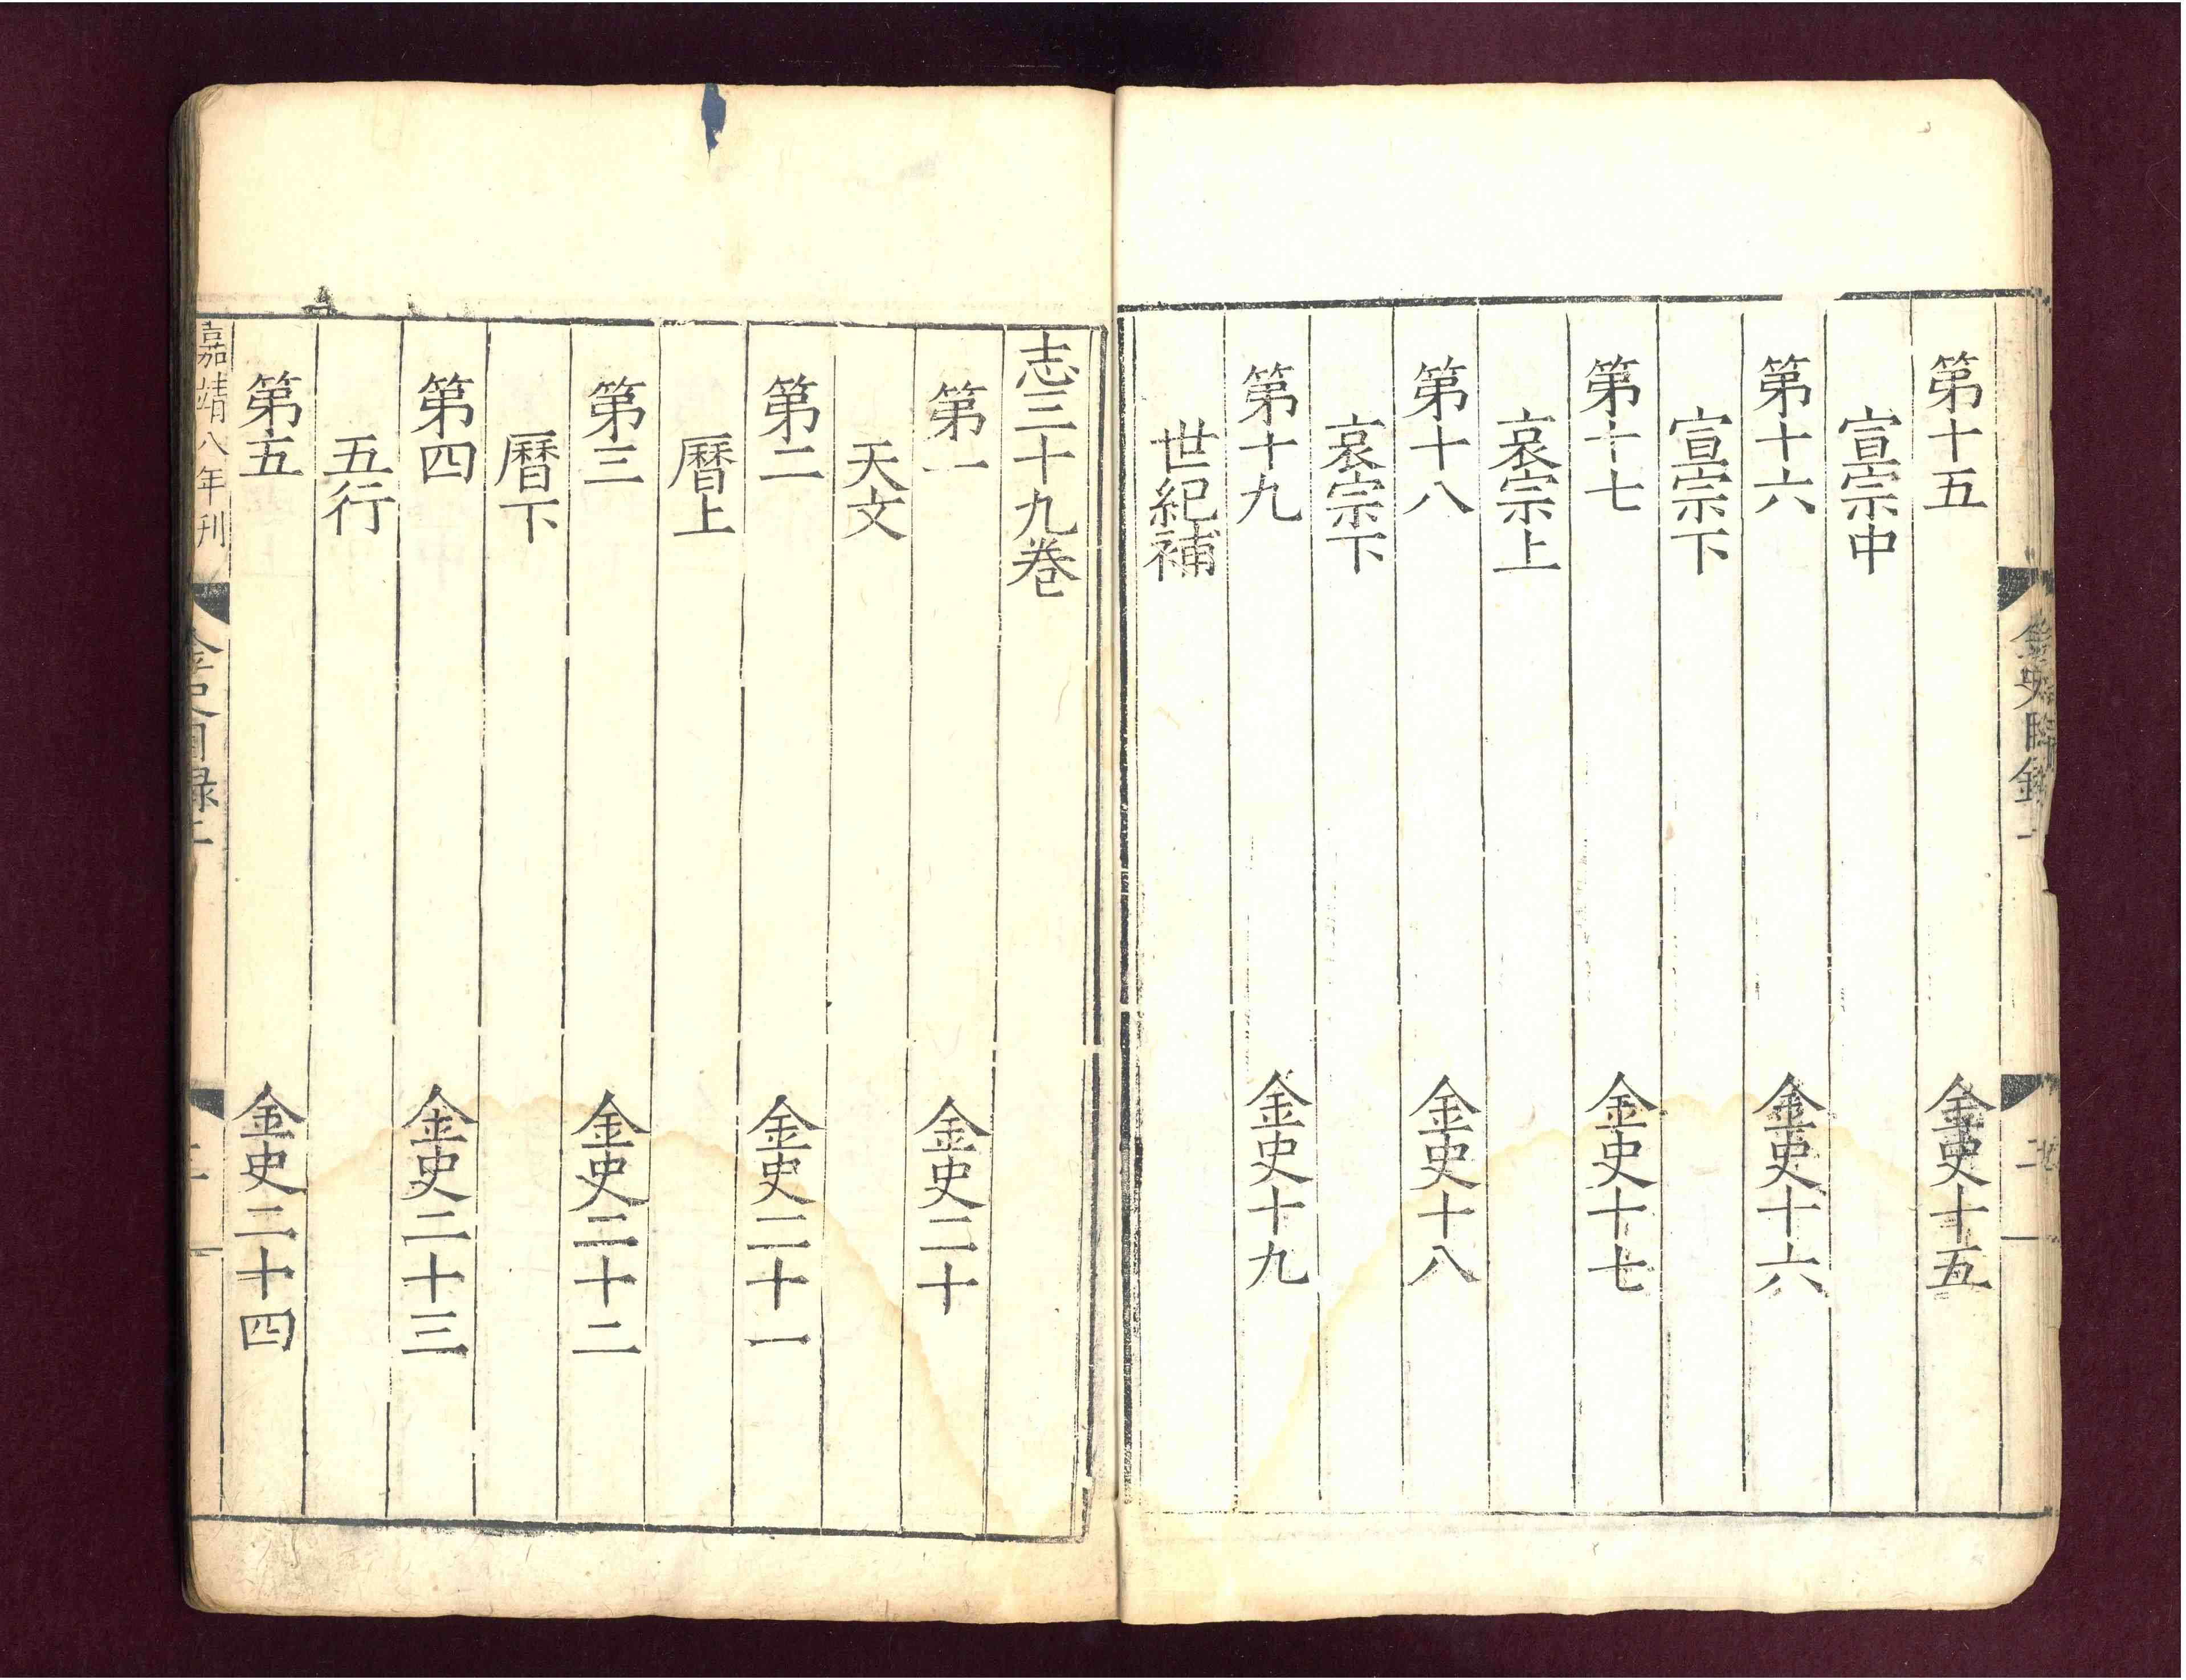 第十五　金史十五
宣宗中
第十六　金史十六
宣宗下
第十七　金史十七
哀宗上
第十八　金史十八
哀宗下
第十九　金史十九
世紀補
志三十九卷
第一　金史二十
天文
第二　金史二十一
曆上
第三　金史二十二
曆下
第四　金史二十三
五行
第五　金史二十四
嘉靖八年刊
金史目録